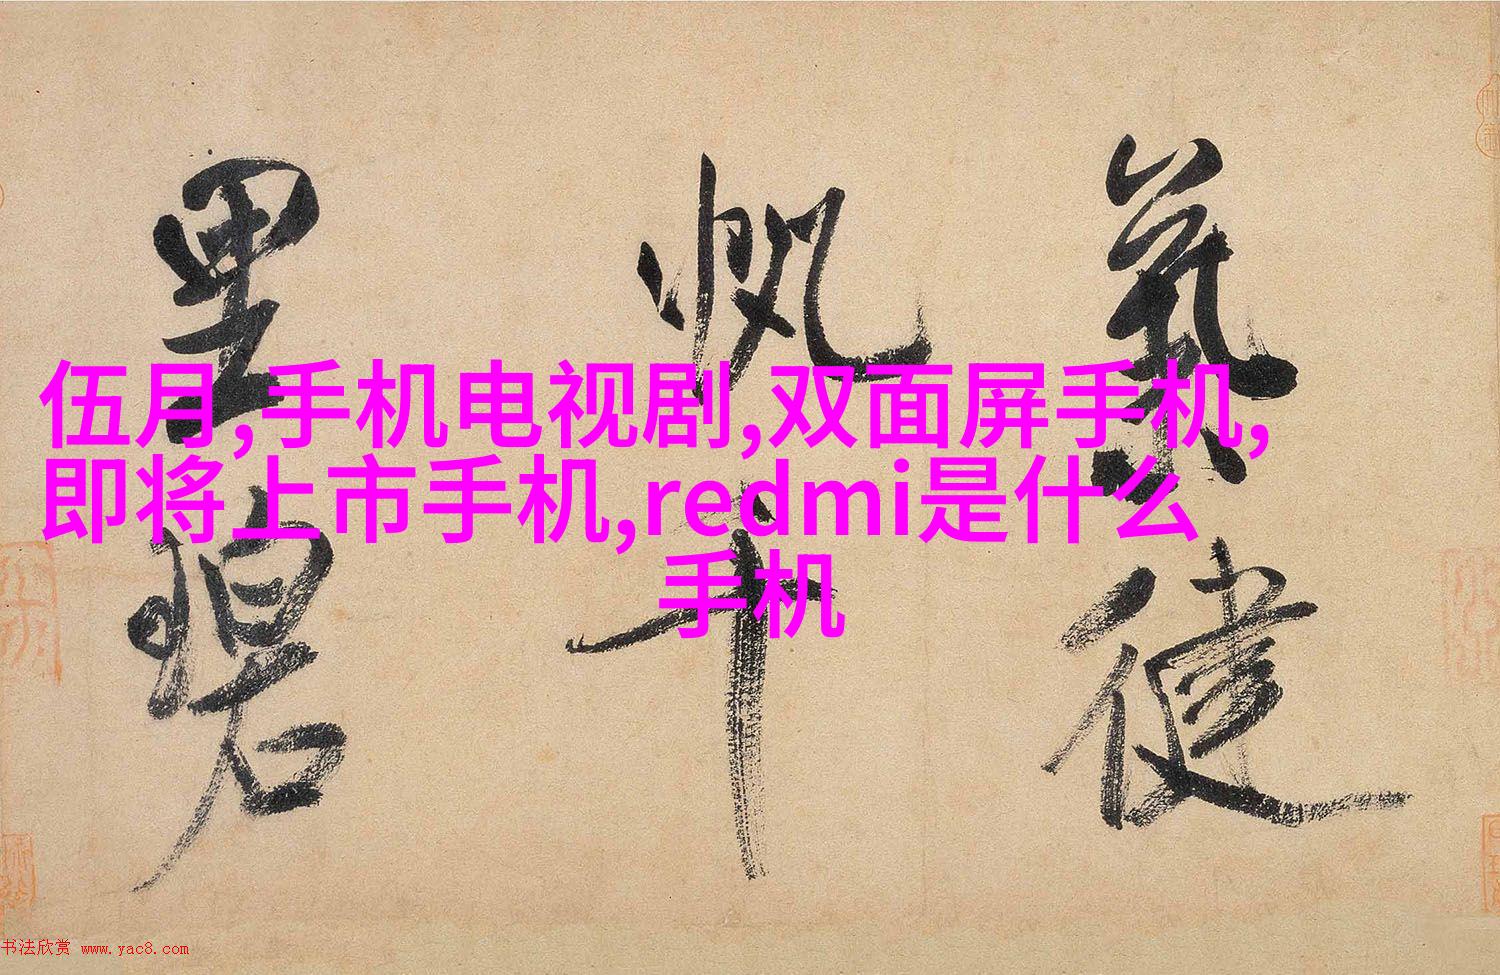 伍月,手机电视剧,双面屏手机,
即将上市手机,redmi是什么
手机
健
帆千
里碧
书法欣赏 www.yac8.com